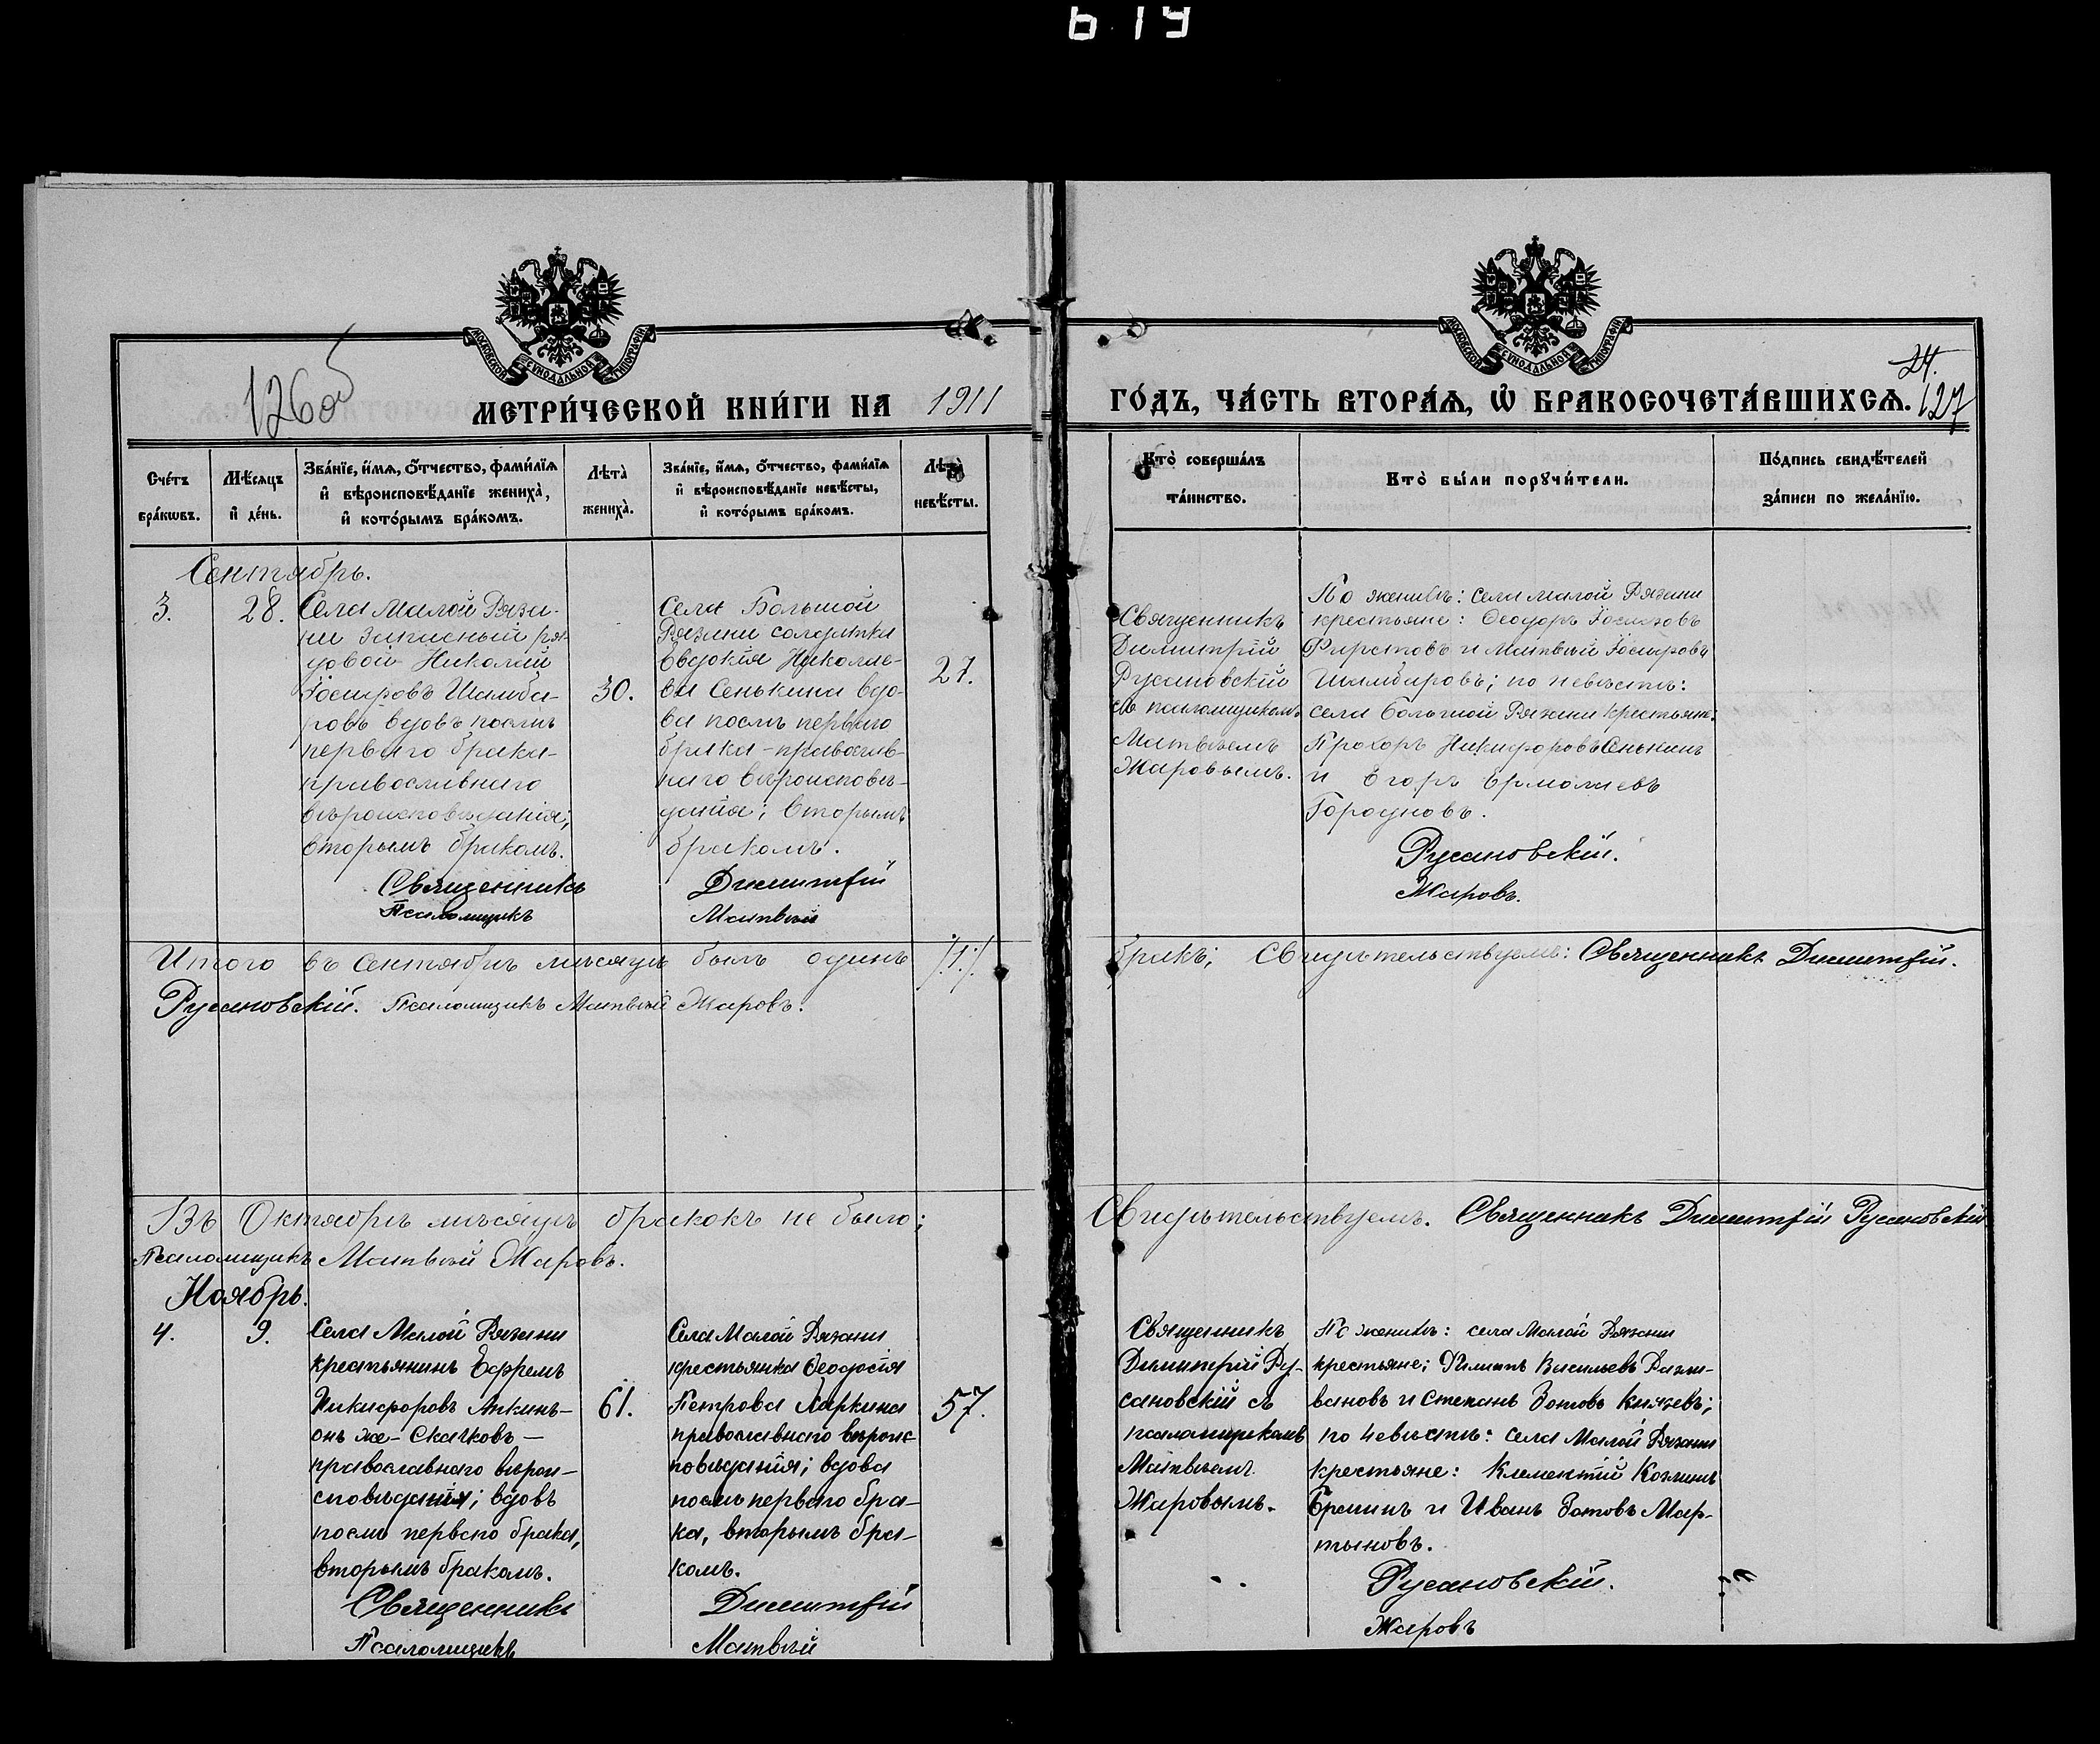 619
МОСКОВСКОЙ СѴНОДАЛЬНОЙ ТИПОГРАФІИ
МОСКОВСКОЙ СѴНОДАЛЬНОЙ ТИПОГРАФІИ
126об
МЕТРИ́ЧЕСКОЙ КНИ́ГИ НА 1911
ГО́ДЪ, ЧА́СТЬ ВТОРА́Ѧ, Ѡ҆ БРАКОСОЧЕТА́ВШИХСѦ.
24.
127
Сче́тъ бра́кѡвъ.
Мѣ́сяцъ и҆ де́нь.
Зва́нїе, и҆́мѧ, ѻ҆́тчество, фами́лїѧ и҆ вѣроисповѣ́данїе жениха̀, и҆ кото́рымъ бра́комъ.
Лѣта̀ жениха̀.
Зва́нїе, и҆́мѧ, ѻ҆́тчество, фами́лїѧ и҆ вѣроисповѣ́данїе невѣ́сты, и҆ кото́рымъ бра́комъ.
Лѣта̀ невѣ́сты.
Кто̀ соверша́лъ та́инство.
Кто̀ бы́ли порꙋчи́тели.
По́дпись свидѣ́телей за́писи по жела́нїю.
Сентябрь.
3.
28.
Села Малой Ряза-
ни запасный ря-
довой Николай
Іосифовъ Шамба-
ровъ вдовъ послѣ
перваго брака-
православнаго
вѣроисповѣданія;
вторымъ бракомъ.
30.
Села Большой
Рязани солдатка
Евдокія Николае-
ва Сенькина вдо-
ва послѣ перваго
брака - православ-
наго вѣроисповѣ-
данія; вторымъ
бракомъ.
27.
Священникъ
Димитрій
Русановскій
съ псаломщикомъ
Матвѣемъ
Жаровымъ.
По женихѣ: села Малой Рязани
крестьяне: Ѳеодоръ Іосифовъ
и Матвѣй Іосифовъ
Шамбаровъ; по невѣстѣ:
села Большой Рязани крестьяне:
Прохоръ Никифоровъ Сенькинъ
и Егоръ Ермолаевъ
Священникъ Димитрій Русановскій.
Псаломщикъ Матвѣй Жаровъ.
Итого въ Сентябрѣ мѣсяцѣ былъ одинъ /1./ бракъ; Свидѣтельствуемъ: Священникъ Димитрій
Русановскій. Псаломщикъ Матвѣй Жаровъ.
Въ Октябрѣ мѣсяцѣ браковъ не было; Свидѣтельствуемъ. Священникъ Димитрій Русановскій
Псаломщикъ Матвѣй Жаровъ.
Ноябрь.
4.
9.
Села Малой Рязани
крестьянинъ Ефремъ
Никифоровъ Аникинъ-
онъ же - Скачковъ -
православнаго вѣрои-
сповѣданія; вдовъ
послѣ перваго брака,
вторымъ бракомъ.
61.
Села Малой Рязани
крестьянка Ѳеодосія
Петрова Ларкина
православнаго вѣроис-
повѣданія; вдова
послѣ перваго бра-
ка, вторымъ бра-
комъ.
57.
Священникъ
Димитрій Ру-
сановскій съ
псаломщикомъ
Матвѣемъ
Жаровымъ.
По женихѣ: села Малой Рязани
крестьяне; Филиппъ Васильевъ
и Степанъ Зотовъ Князевъ;
по невѣстѣ: села Малой Рязани
крестьяне: Климентій Козминъ
и Иванъ Зотовъ Мар-
тыновъ.
Священникъ Димитрій Русановскій.
Псаломщикъ Матвѣй Жаровъ